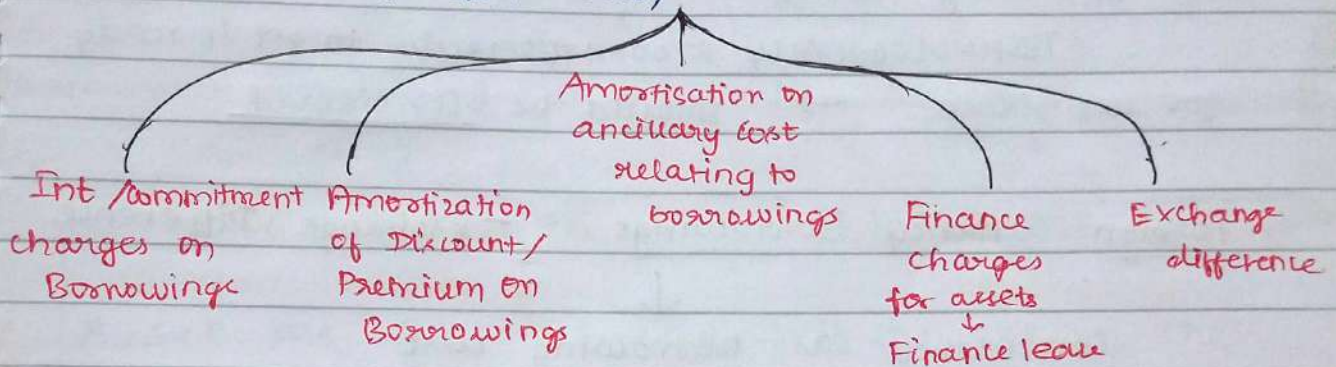 Int /commitment
charges on
Borrowings
Amortization
of Discount/
Premium on
Borrowings
Amortisation on
ancillary cost
relating to
borrowings
Finance
charges
for assets
↓
Finance lease
Exchange
difference